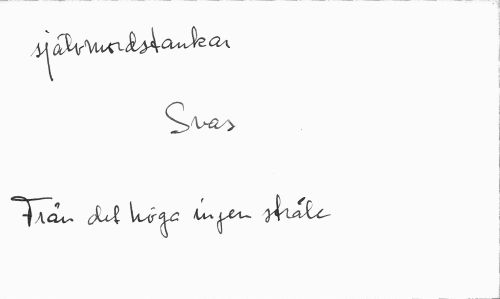 självmordstankar
Svas
Från det höga ingen stråle